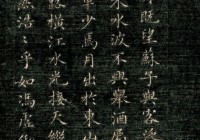 既望蘇子與客
來水波不興舉酒屬
少焉月出於東山
橫江水光接天縱
浩浩乎如馮虛